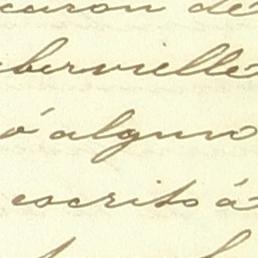 caron de
bervielle
ó alguno
escrito á